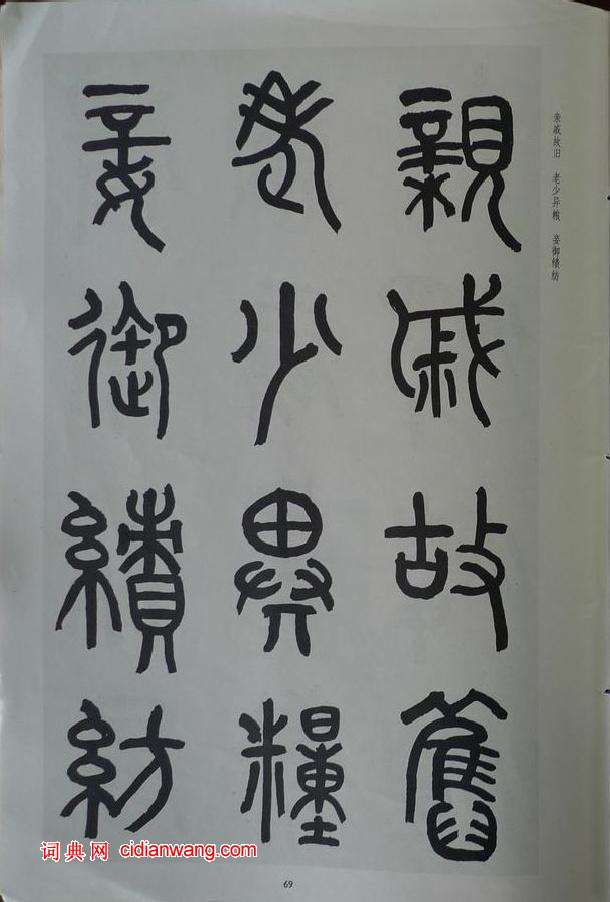 親戚故舊
老少異糧
妾御績紡
亲戚故旧 老少异粮 妾御绩纺
词典网 cidianwang.com
69